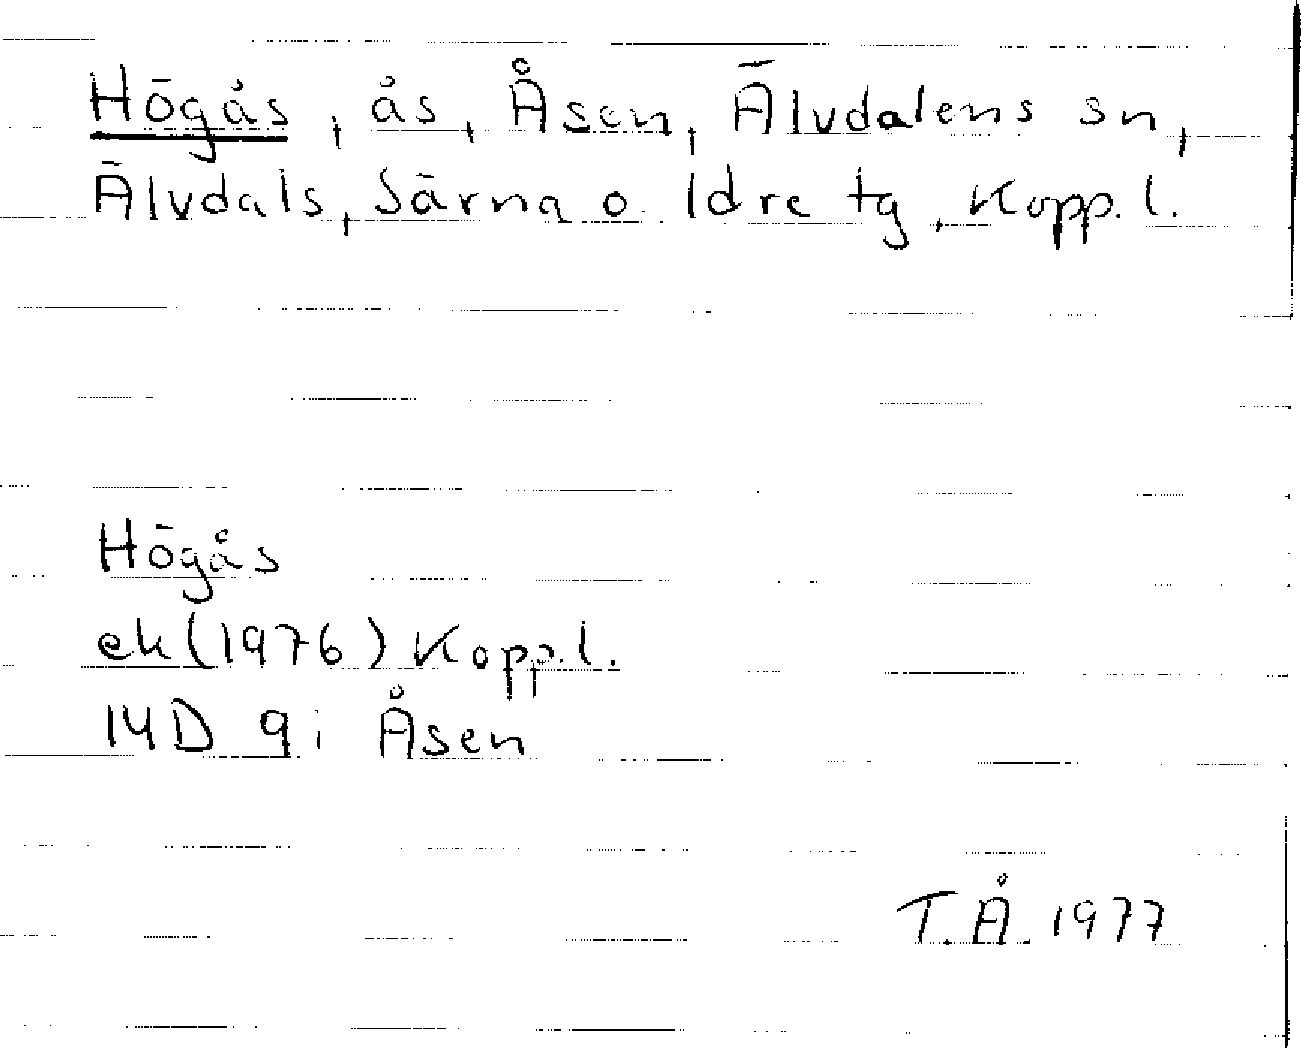 Högås, ås, Åsen, Älvdalens sn,
Älvdals, Särna o Idre tg, Kopp. l.
Högås
ek (1976) Kopp. l.
14D 9i Åsen
T. Å. 1977